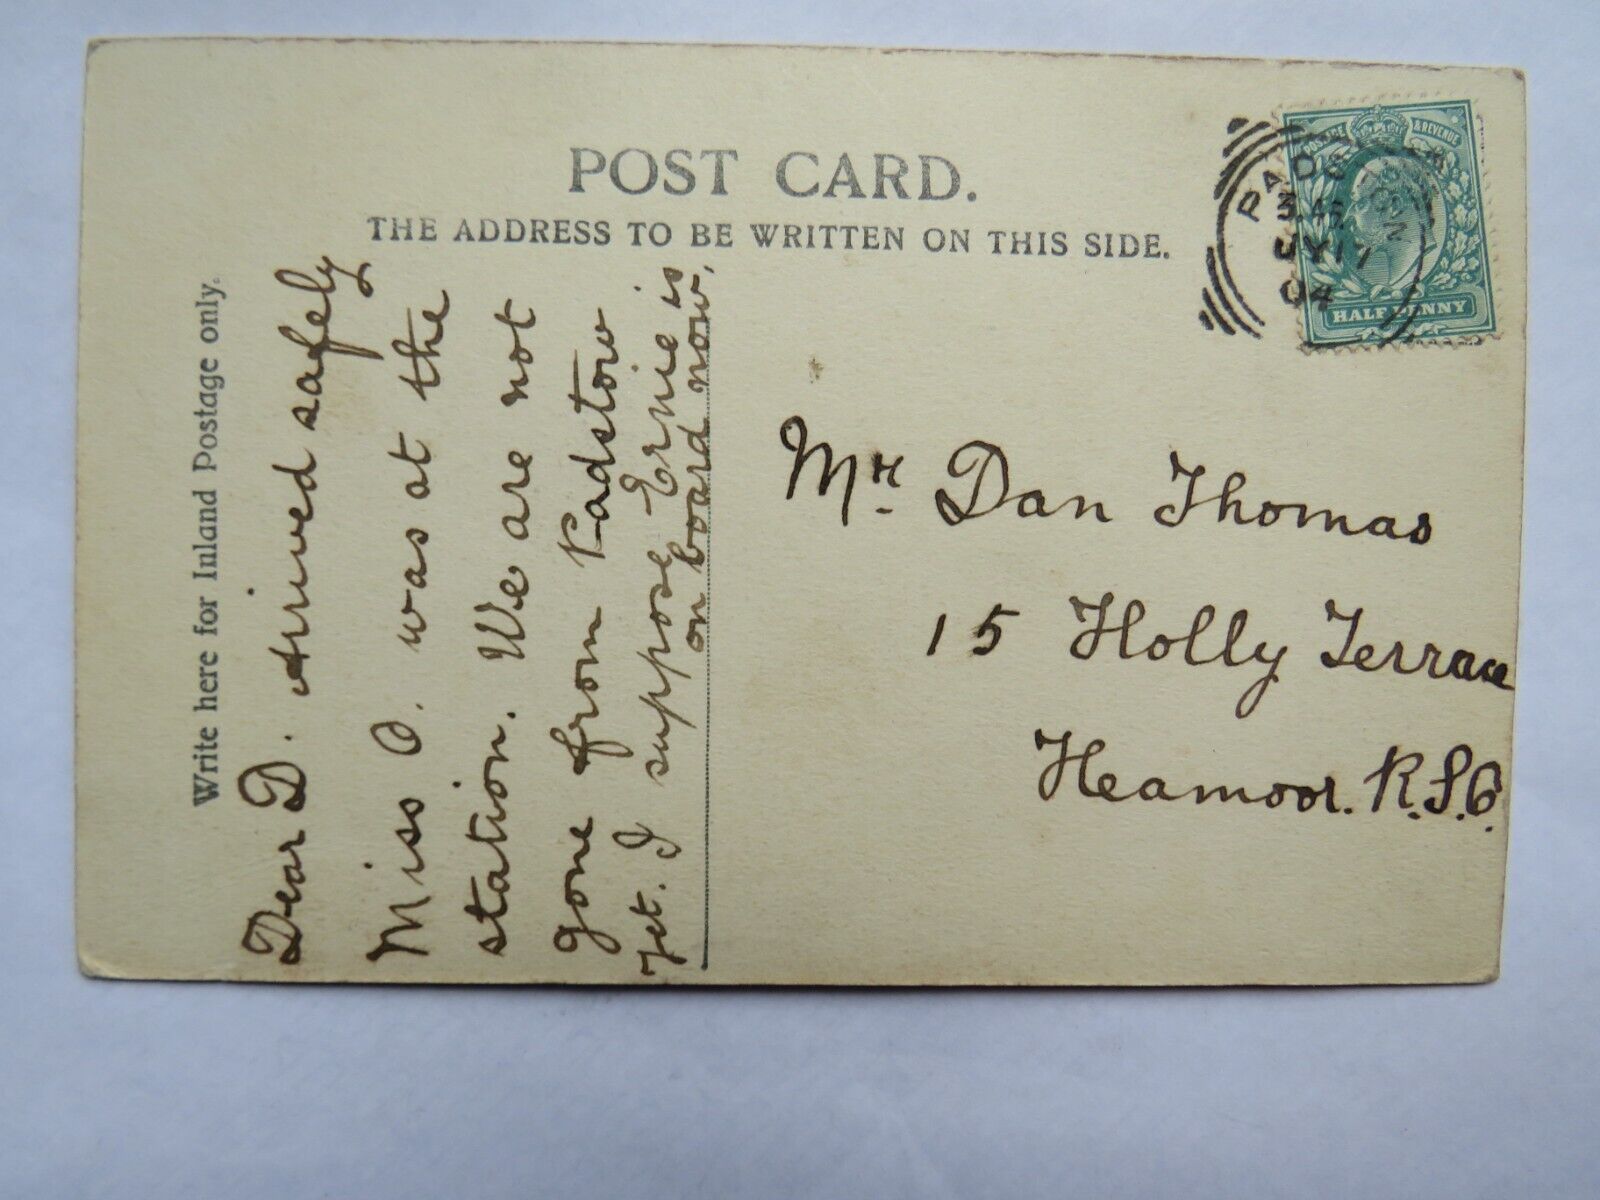 POST CARD.
THE ADDRESS TO BE WRITTEN ON THIS SIDE.
Write here for Inland Postage only.
Dear D. Arrived safely
Miss O. was at the
station. We are not
gone from Padstow
yet. I suppose Ernie is
on board now.
POSTAGE & REVENUE
HALFPENNY
PADSTOW
3.45
JY 17
04
Mr. Dan Thomas
15 Holly Terrace
Heamoor. R.S.O.